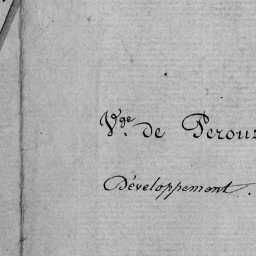 Vge. de Perouz
Développement.